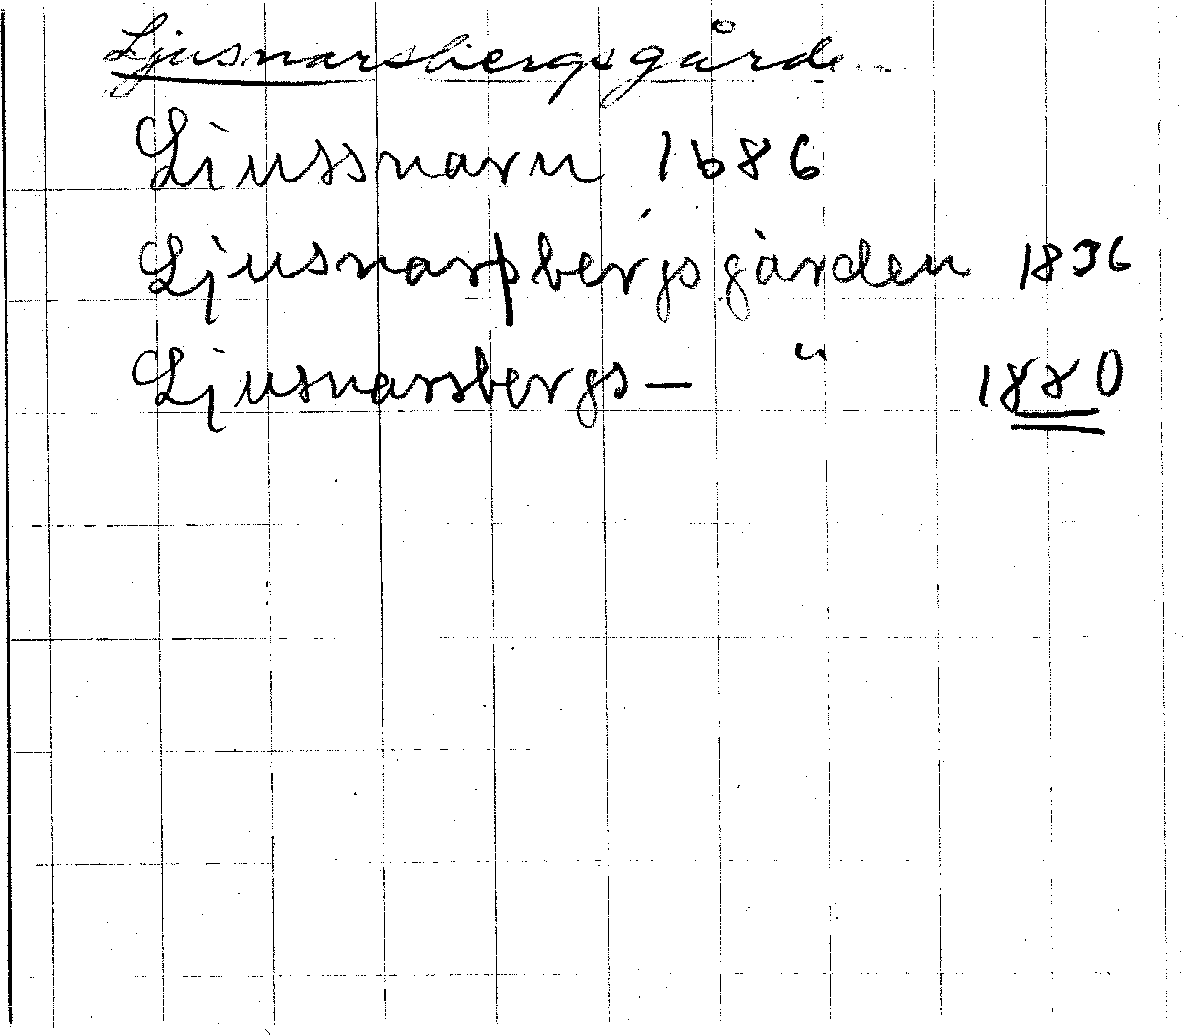 Ljusnarsbergsgården
Liussnarn 1686
Ljusnarsbergsgården 1836
Ljusnarsbergs- " 1880